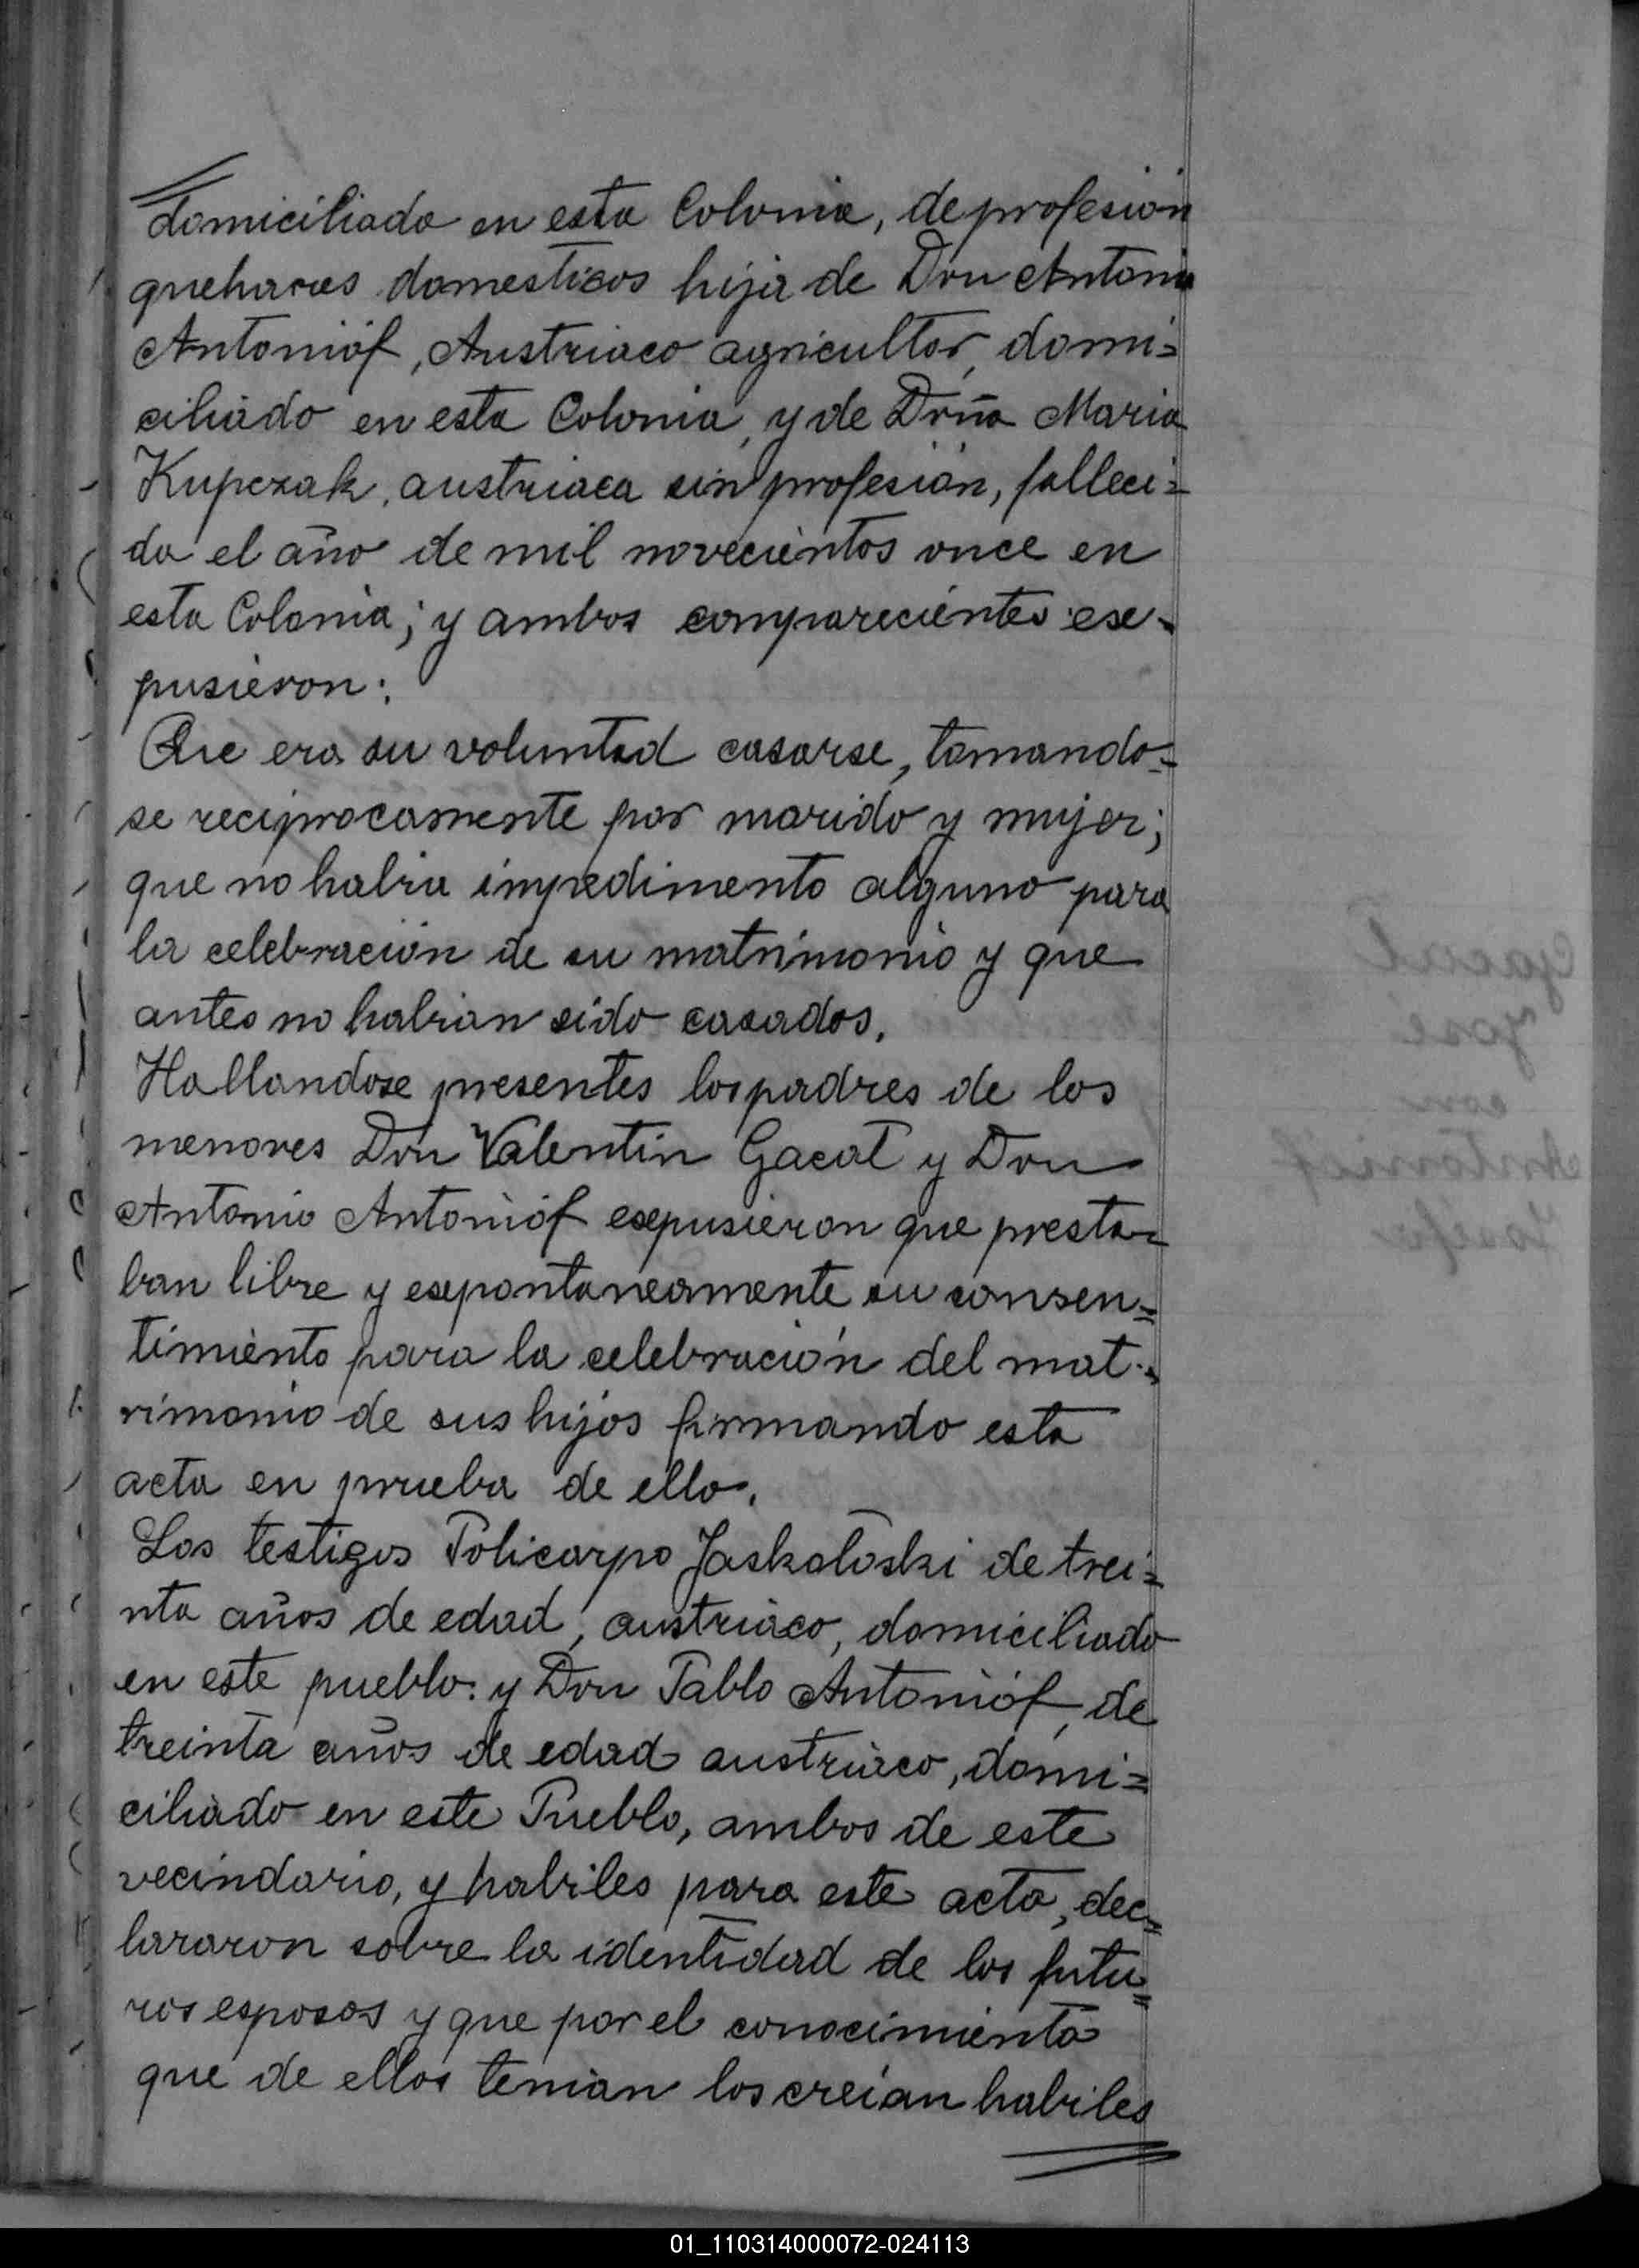 domiciliada en esta Colonia, de profesión
quehaces domesticos hija de Don Antonio
Antoniöf, Austriaco agricultor, domi=
ciliado en esta Colonia, y de Doña Maria
Kupczak, austriaca sin profesión, falleci=
da el año de mil novecientos once en
esta Colonia; y ambos comparecientes ex-
pusieron:
Que era su voluntad casarse, tomando=
se reciprocamente por marido y mujer;
que no habia impedimento alguno para
la celebración de su matrimonio y que
antes no habian sido casados.
Hallandose presentes los padres de los
menores Don Valentin Gacat y Don
Antonio Antoniöf expusieron que presta=
ban libre y expontaneamente su consen=
timiento para la celebración del mat-
rimonio de sus hijos firmando esta
acta en prueba de ello.
Los testigos Policarpo Jaskaloski de trei=
nta años de edad, austriaco, domiciliado
en este pueblo: y Don Pablo Antoniöf, de
treinta años de edad austriaco, domi=
ciliado en este Pueblo, ambos de este
vecindario, y habiles para este acto, dec=
lararon sobre la identidad de los futu=
ros esposos y que por el conocimiento
que de ellos tenian los creian habiles
01_110314000072-024113